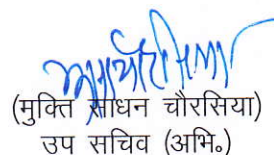 (मुक्ति साधन चौरसिया)
उप सचिव (अभि०)